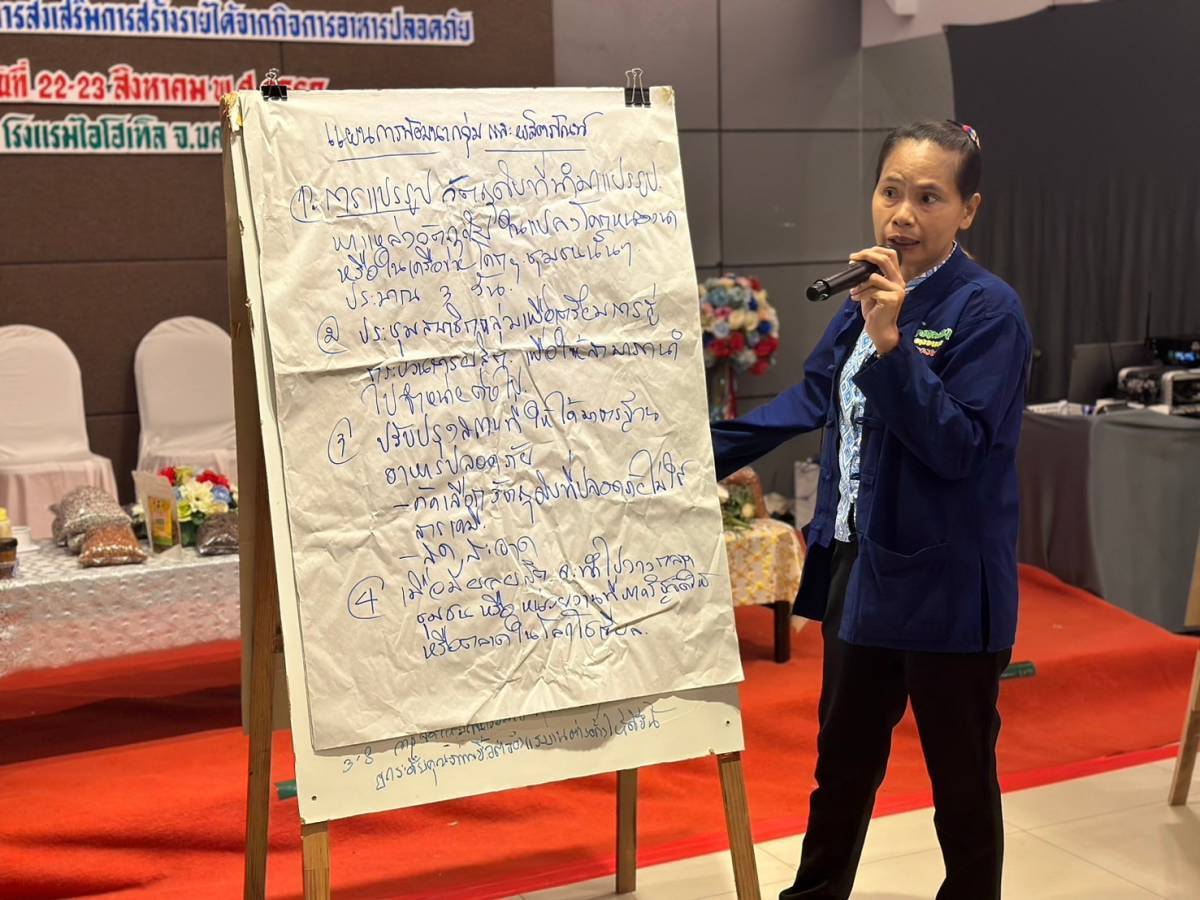 การส่งเสริมการสร้างรายได้จากกิจการอาหารปลอดภัย
วันที่ 22-23 สิงหาคม พ.ศ.
โรงแรมไอโฮเทล จ.นค
แผนการพัฒนากลุ่ม และ ผลิตภัณฑ์
1. การแปรรูป วัตถุดิบที่นำมาแปรรูป
หาแหล่งวัตถุดิบ ในแปลงโคกหนองนา
หรือในเครือข่าย ชุมชนนั้นๆ
ประมาณ 3 วัน.
2 ประชุมสมาชิกกลุ่มเพื่อเตรียมการสู่
กระบวนการผลิต เพื่อให้สามารถนำ
ไปจำหน่ายต่อไป
3 ปรับปรุงสถานที่ให้ได้มาตรฐาน
อาหารปลอดภัย
- คัดเลือกวัตถุดิบที่ปลอดภัยไม่ใช้
สารเคมี.
- สด, สะอาด
4 เมื่อมีผลผลิต จะนำไปวางตลาด
ชุมชน หรือ หน่วยงานที่ภาครัฐจัดให้
หรือตลาดในโลกโซเชียล.
3.8